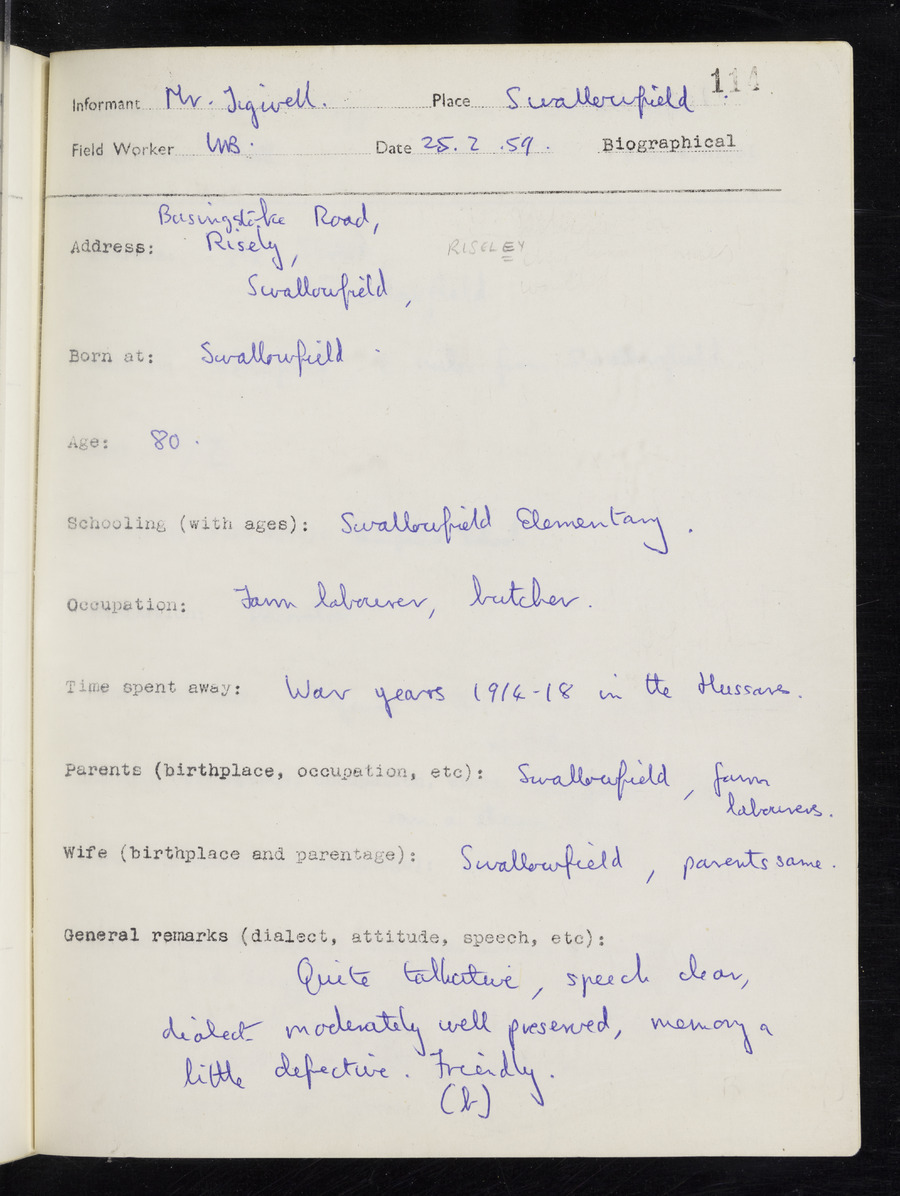 114
Informant Mr. Tigwell. Place Swallowfield
Field Worker WB. Date 25.2.59. Biographical
Basingstoke Road,
Address: Risely, RISELEY
Swallowfield,
Born at: Swallowfield.
Age: 80.
Schooling (with ages): Swallowfield Elementary.
Occupation: Farm labourer, butcher.
Time spent away: War years 1914-18 in the Hussars.
Parents (birthplace, occupation, etc): Swallowfield, farm
labourers.
Wife (birthplace and parentage): Swallowfield, parents same.
General remarks (dialect, attitude, speech, etc):
Quite talkative, speech clear,
dialect moderately well preserved, memory a
little defective. Friendly.
(b)